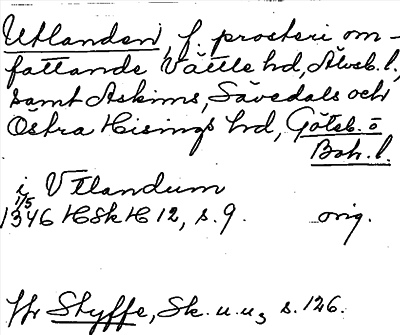 Utlanden, f. prosteri om-
fattande Vättle hd, Älvsb. l.,
samt Askims, Sävedals och
Östra Hisings hd, Göteb. o
Boh. l.
i Utlandum
1/5
1346 HSkH 12, s. 9. orig.
Jfr Styffe, Sk. u. u3 s. 126.